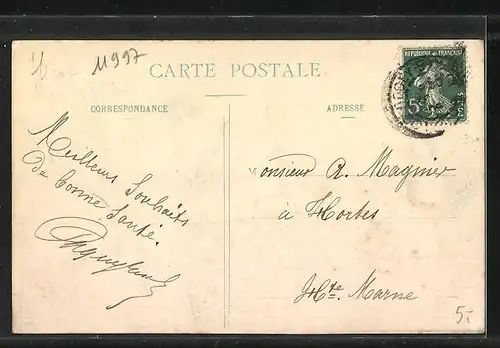 11997
CARTE POSTALE
CORRESPONDANCE
ADRESSE
REPUBLIQUE FRANÇAISE
5c
POSTES
Meilleurs Souhaits
de bonne Santé.
Monsieur A. Magnier
à Hortes
Hte. Marne
5.-